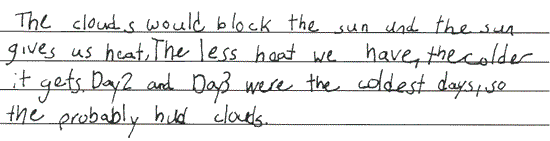 The clouds would block the sun and the sun
gives us heat, The less heat we have, the colder
it gets. Day2 and Day3 were the coldest days, so
the probably hud clouds.